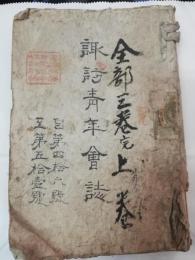 全部三巻完 上巻
諏訪青年會誌
自第四拾六號
至第五拾壹號